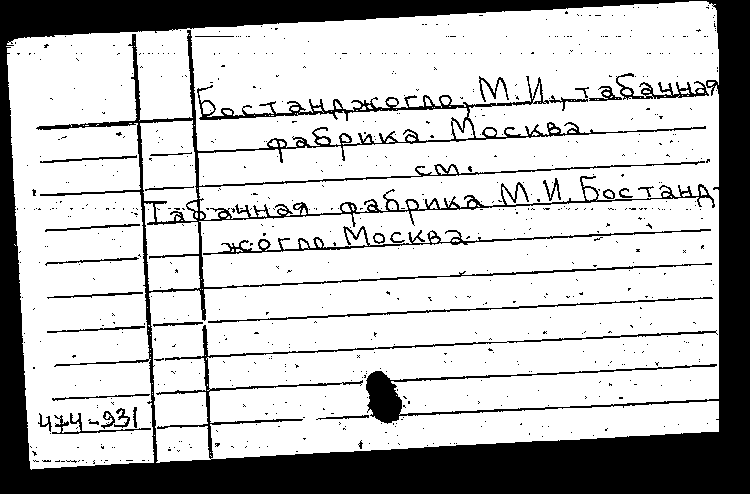 Бостанджогло, М.И., табачная
фабрика. Москва.
см.
Табачная фабрика М.И. Бостанд-
жогло. Москва.
474-931